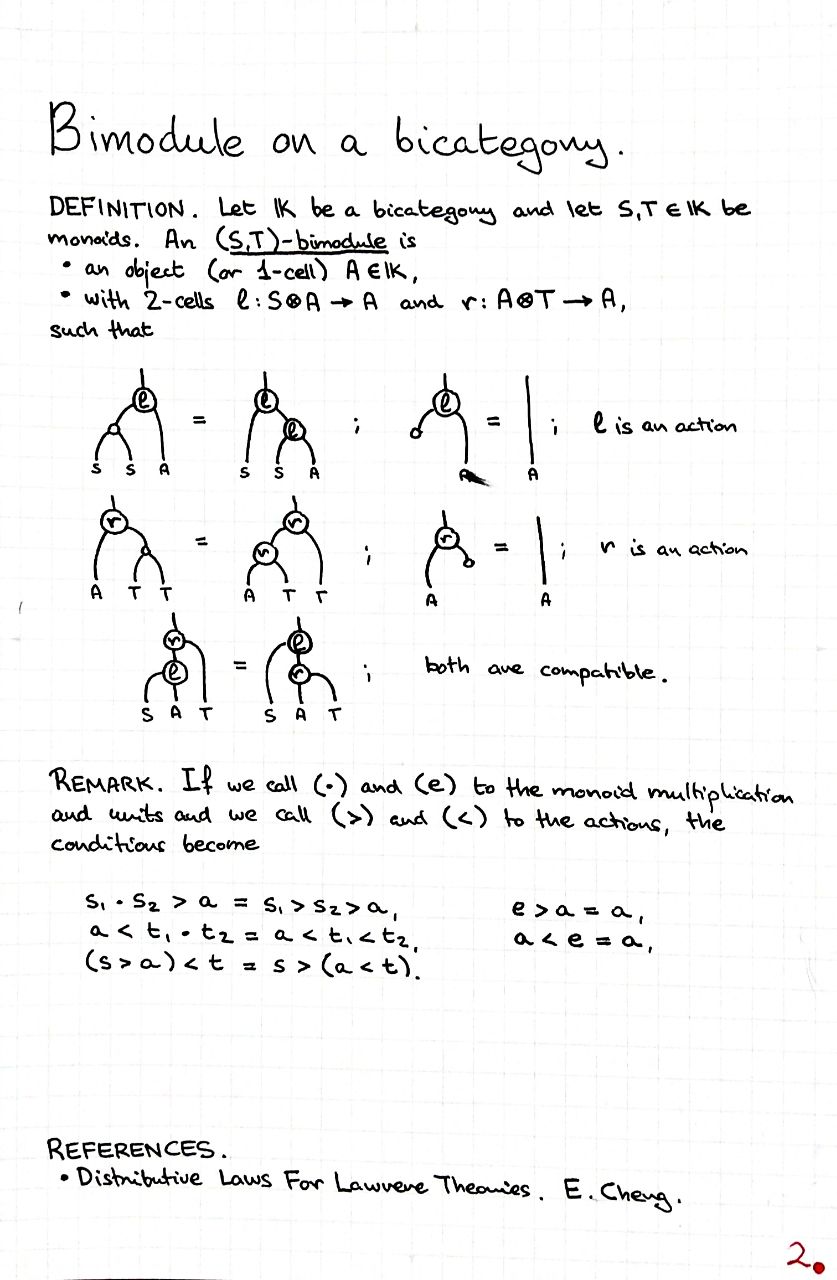 Bimodule on a bicategory.
DEFINITION. Let 𝕂 be a bicategory and let S,T ∈ 𝕂 be
monoids. An (S,T)-bimodule is
• an object (or 1-cell) A ∈ 𝕂,
• with 2-cells ℓ: S⊗A → A and r: A⊗T → A,
such that
ℓ = ℓ ℓ ; ℓ = ; ℓ is an action
S S A S S A A A
r = r r ; r = ; r is an action
A T T A T T A A
r ℓ = ℓ r ; both are compatible.
S A T S A T
REMARK. If we call (·) and (e) to the monoid multiplication
and units and we call (>) and (<) to the actions, the
conditions become
s₁ · s₂ > a = s₁ > s₂ > a, e > a = a,
a < t₁ · t₂ = a < t₁ < t₂, a < e = a,
(s > a) < t = s > (a < t).
REFERENCES.
• Distributive Laws For Lawvere Theories. E. Cheng.
2.